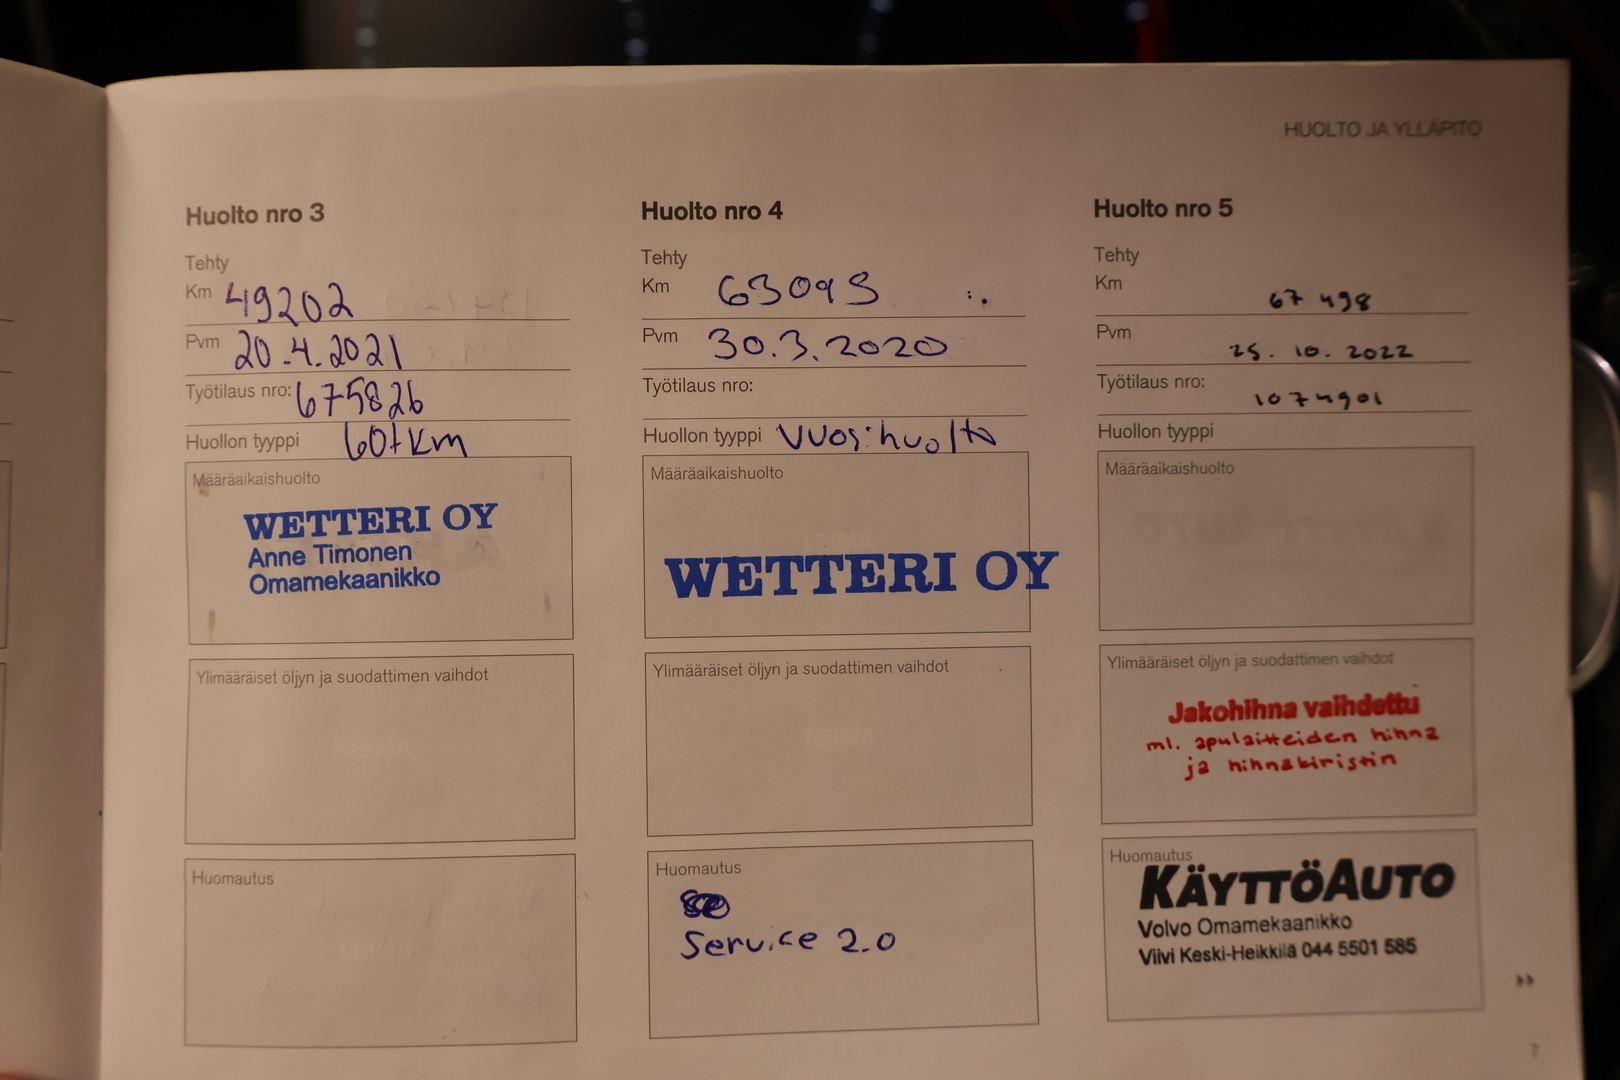 HUOLTO JA YLLÄPITO
Huolto nro 3
Tehty
Km 49202
Pvm 20.4.2021
Työtilaus nro: 675826
Huollon tyyppi 60tkm
Määräaikaishuolto
WETTERI OY
Anne Timonen
Omamekaanikko
Ylimääräiset öljyn ja suodattimen vaihdot
LEIMA
Huomautus
Huolto nro 4
Tehty
Km 63095
Pvm 30.3.2020
Työtilaus nro:
Huollon tyyppi Vuosihuolto
Määräaikaishuolto
LEIMA
WETTERI OY
Ylimääräiset öljyn ja suodattimen vaihdot
LEIMA
Huomautus
Service 2.0
Huolto nro 5
Tehty
Km 67 498
Pvm 25. 10. 2022
Työtilaus nro: 1074901
Huollon tyyppi
Määräaikaishuolto
Ylimääräiset öljyn ja suodattimen vaihdot
Jakohihna vaihdettu
ml. apulaitteiden hihna
ja hihnakiristin
Huomautus
KÄYTTÖAUTO
Volvo Omamekaanikko
Viivi Keski-Heikkilä 044 5501 585
7